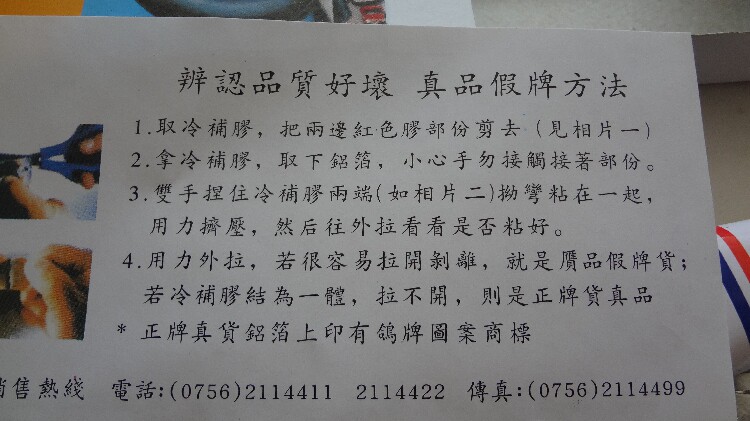 辨認品質好壞 真品假牌方法
1.取冷補膠，把兩邊紅色膠部份剪去（見相片一）
2.拿冷補膠，取下鋁箔，小心手勿接觸接著部份。
3.雙手捏住冷補膠兩端(如相片二)拗彎粘在一起，
用力擠壓，然后往外拉看看是否粘好。
4.用力外拉，若很容易拉開剝離，就是贋品假牌貨；
若冷補膠結為一體，拉不開，則是正牌貨真品
* 正牌真貨鋁箔上印有鴿牌圖案商標
售熱綫 電話:(0756)2114411 2114422 傳真:(0756)2114499